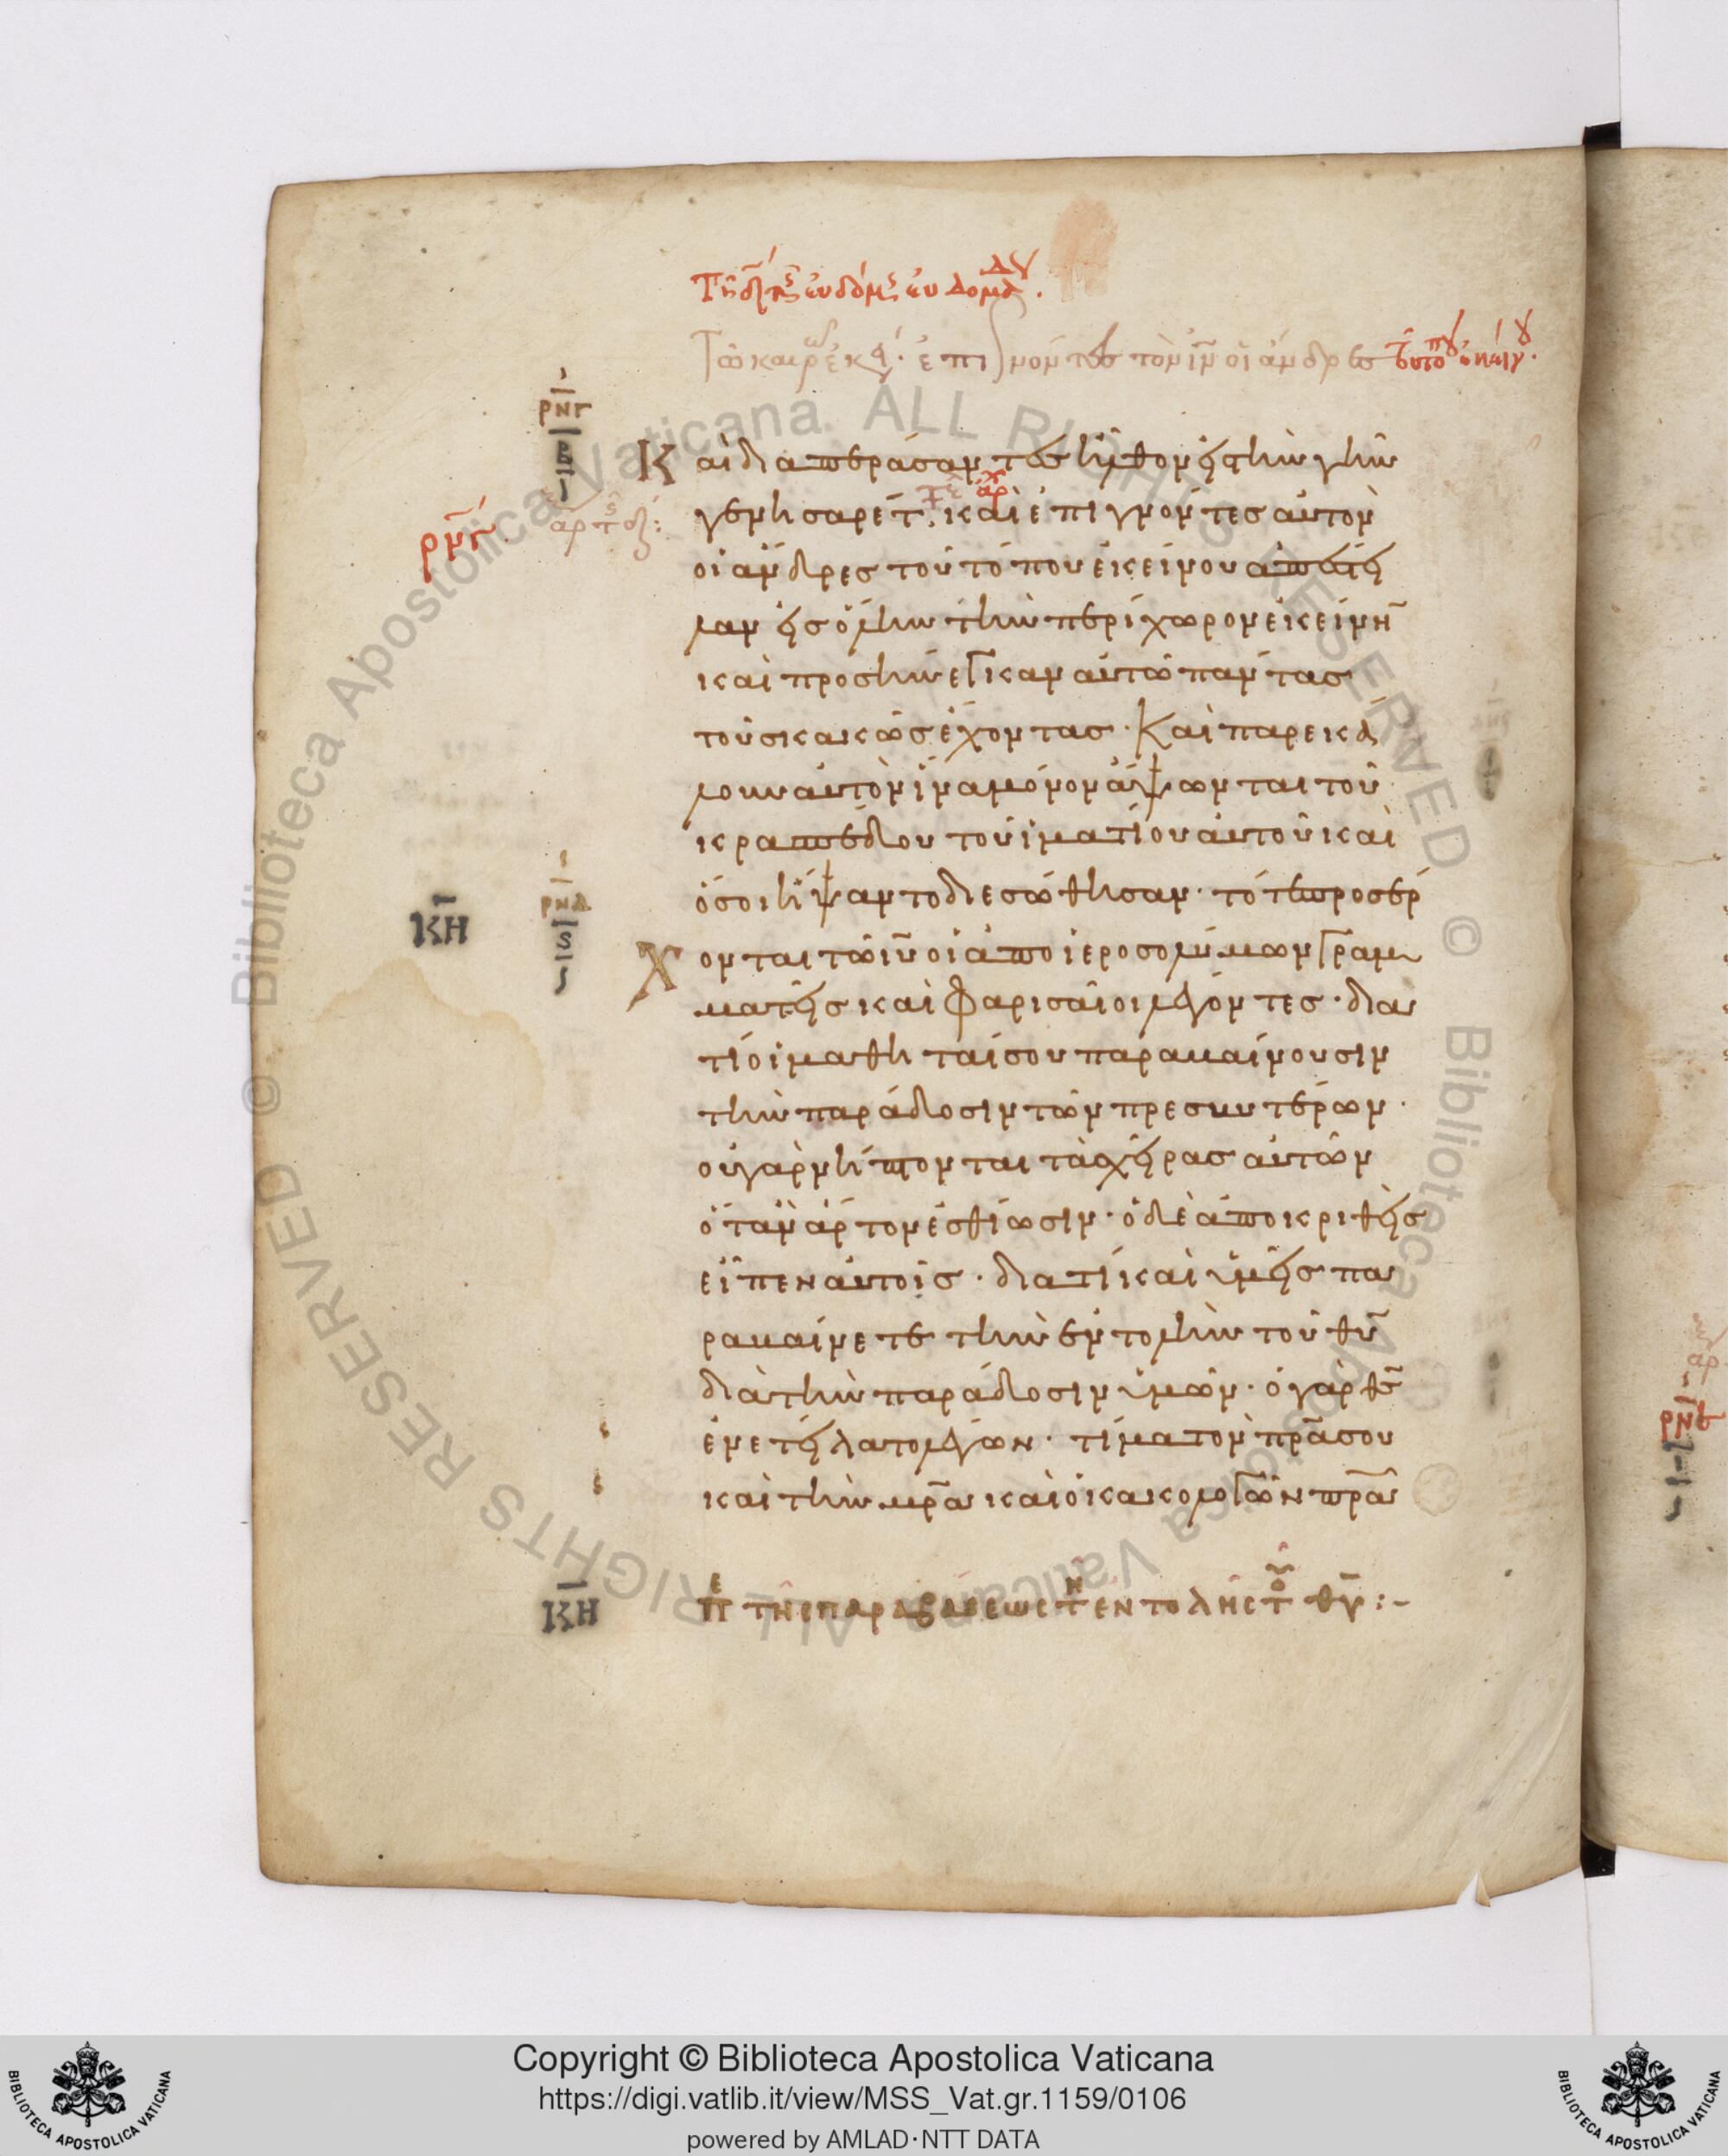 Τῷ καιρῶ ἐκ ἐπιγνόντες τὸν ιν οἱ ἄνδρες
ρνγ
β
Καὶ διαπεράσαντες ἦλθον εἰς τὴν γῆν
γεννησαρέτ· καὶ ἐπιγνόντες αὐτὸν
ρμγ
οἱ ἄνδρες τοῦ τόπου ἐκείνου ἀπέστει
λαν εἰς ὅλην τὴν περίχωρον ἐκείνη
καὶ προσήνεγκαν αὐτῶ πάντας
τοὺς κακῶς ἔχοντας · Καὶ παρεκά
λουν αὐτὸν ἵνα μόνον ἅψωνται τοῦ
κρασπέδου τοῦ ἱματίου αὐτοῦ καὶ
ὅσοι ἥψαντο διεσώθησαν · τότε προσέρ
ΚΗ
ρνδ
ς
Χονται τῶ ιυ οἱ ἀπο ἱεροσολύμων γραμ
ματεῖς καὶ Φαρισαῖοι λέγοντες · δια
τί οἱ μαθηταί σου παραβαίνουσιν
τὴν παράδοσιν τῶν πρεσβυτέρων ·
οὐ γὰρ νίπτονται τὰς χεῖρας αὐτῶν
ὅταν ἄρτον ἐσθίωσιν · ὁ δὲ ἀποκριθεὶς
εἶπεν αὐτοῖς · διατί καὶ ὑμεῖς πα
ραβαίνετε τὴν ἐντολὴν τοῦ θυ
διὰ τὴν παράδοσιν ὑμῶν · ὁ γὰρ θς
ἐνετείλατο λέγων · τίμα τὸν πρα σου
καὶ τὴν μρα καὶ ὁ κακολογῶν πρα
ΚΗ Πε τῆς παραβάσεως τη ἐντολῆς τοῦ θυ :-
Copyright © Biblioteca Apostolica Vaticana
https://digi.vatlib.it/view/MSS_Vat.gr.1159/0106
powered by AMLAD·NTT DATA
BIBLIOTECA APOSTOLICA VATICANA
BIBLIOTECA APOSTOLICA VATICANA
© Biblioteca Apostolica Vaticana. ALL RIGHTS RESERVED
© Biblioteca Apostolica Vaticana. ALL RIGHTS RESERVED